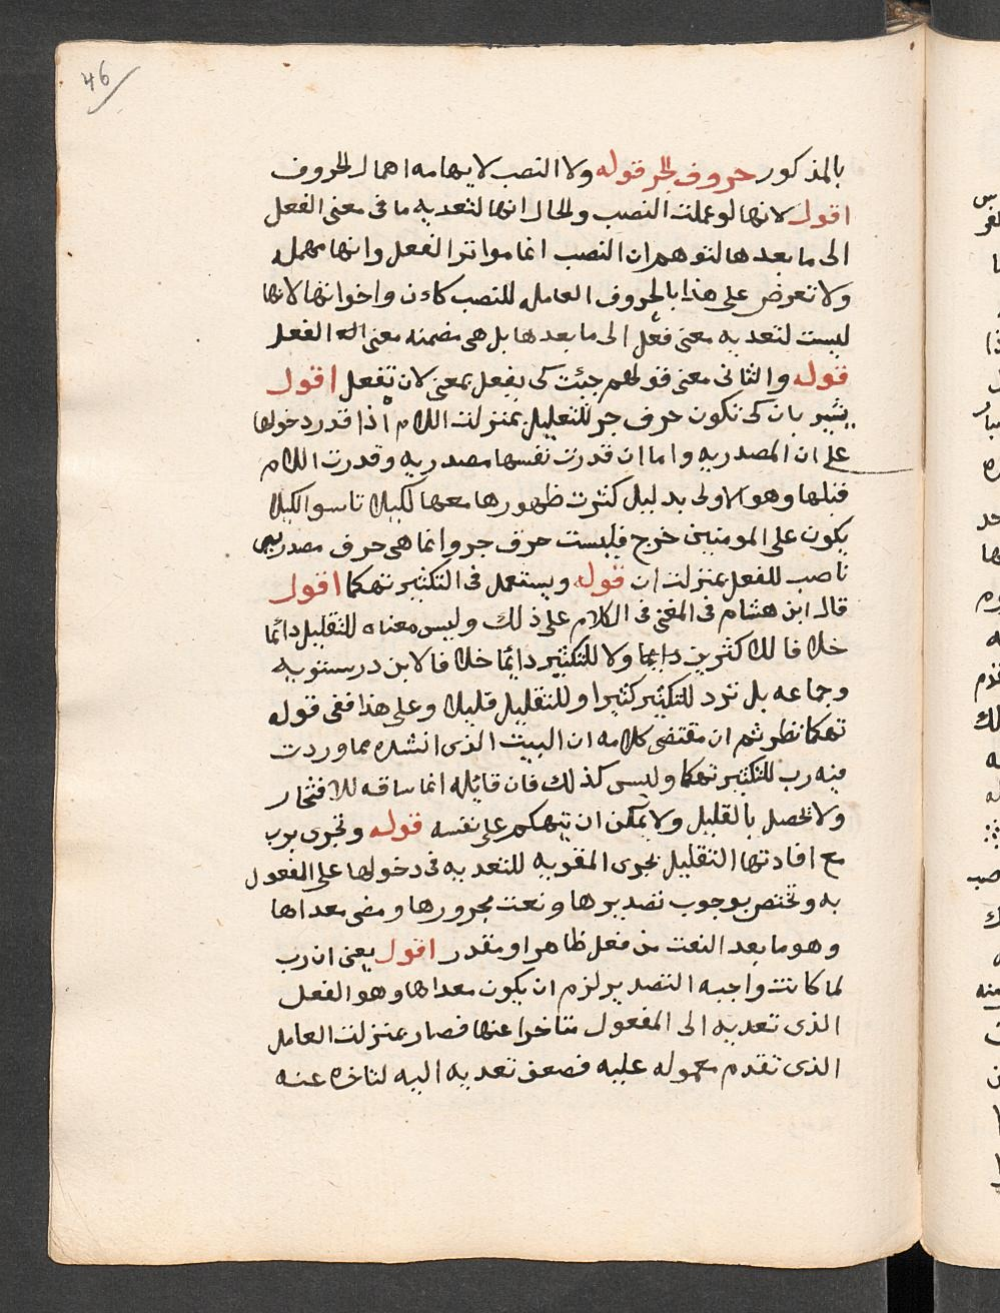 46
بالمذكور حروف الجر قوله ولا النصب لايهامه اهمال الحروف
اقول لانها لو عملت النصب والحال انها لتعديه ما فى معنى الفعل
الى ما بعدها لتوهم ان النصب انما هو اثر الفعل وانها مهمله
ولا تعرض على هذا بالحروف العامله للنصب كان واخواتها لانها
ليست لتعديه معنى فعل الى ما بعدها بل هى مضمنه معنى الفعل
قوله والثانى معنى قولهم جئت كى يفعل بمعنى لان تفعل اقول
يشير بان كى تكون حرف جر للتعليل بمنزلت اللام اذا قدر دخولها
على ان المصدريه واما ان قدرت نفسها مصدريه وقدرت اللام
قبلها وهو الاولى بدليل كثرت ظهورها معها لكيلا تاسوا لكيلا
يكون على المومنين حرج فليست حرف جر وانما هى حرف مصدرى
ناصب للفعل بمنزلت ان قوله ويستعمل فى التكثير تهكما اقول
قال ابن هشام فى المغنى فى الكلام على ذلك وليس معناه للتقليل دائما
خلافا للاكثرين دايما ولا للتكثير دايما خلافا لابن درستويه
وجماعه بل ترد للتكثير كثيرا وللتقليل قليلا وعلى هذا ففى قوله
تهكما نظر ثم ان مقتضى كلامه ان البيت الذى انشده مما وردت
فيه رب للتكثير تهكما وليس كذلك فان قائله انما ساقه للافتخار
ولا يحصل بالقليل ولا يمكن ان يتهكم على نفسه قوله وتجرى برب
مع افادتها التقليل مجرى المقويه للتعديه فى دخولها على المفعول
به وتختص بوجوب تصديرها ونعت مجرورها ومضى معداها
وهو ما بعد النعت من فعل ظاهر او مقدر اقول يعنى ان رب
لما كانت واجبه التصدير لزم ان يكون معداها وهو الفعل
الذى تعديه الى المفعول متاخرا عنها فصار بمنزلت العامل
الذى تقدم معموله عليه فضعف تعديه اليه لتاخره عنه